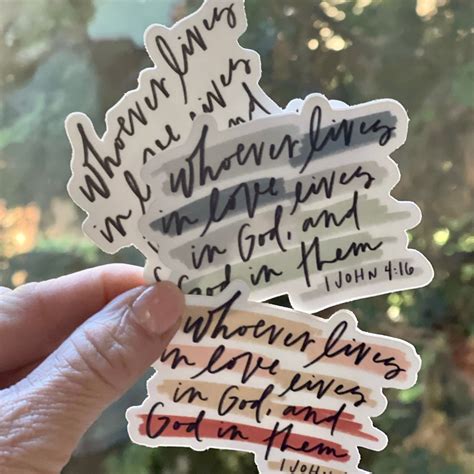 Whoever lives
in love lives
in
Whoever lives
in love lives
in God, and
God in them
1 JOHN 4:16
Whoever lives
in love lives
in God, and
God in them
1 JOHN